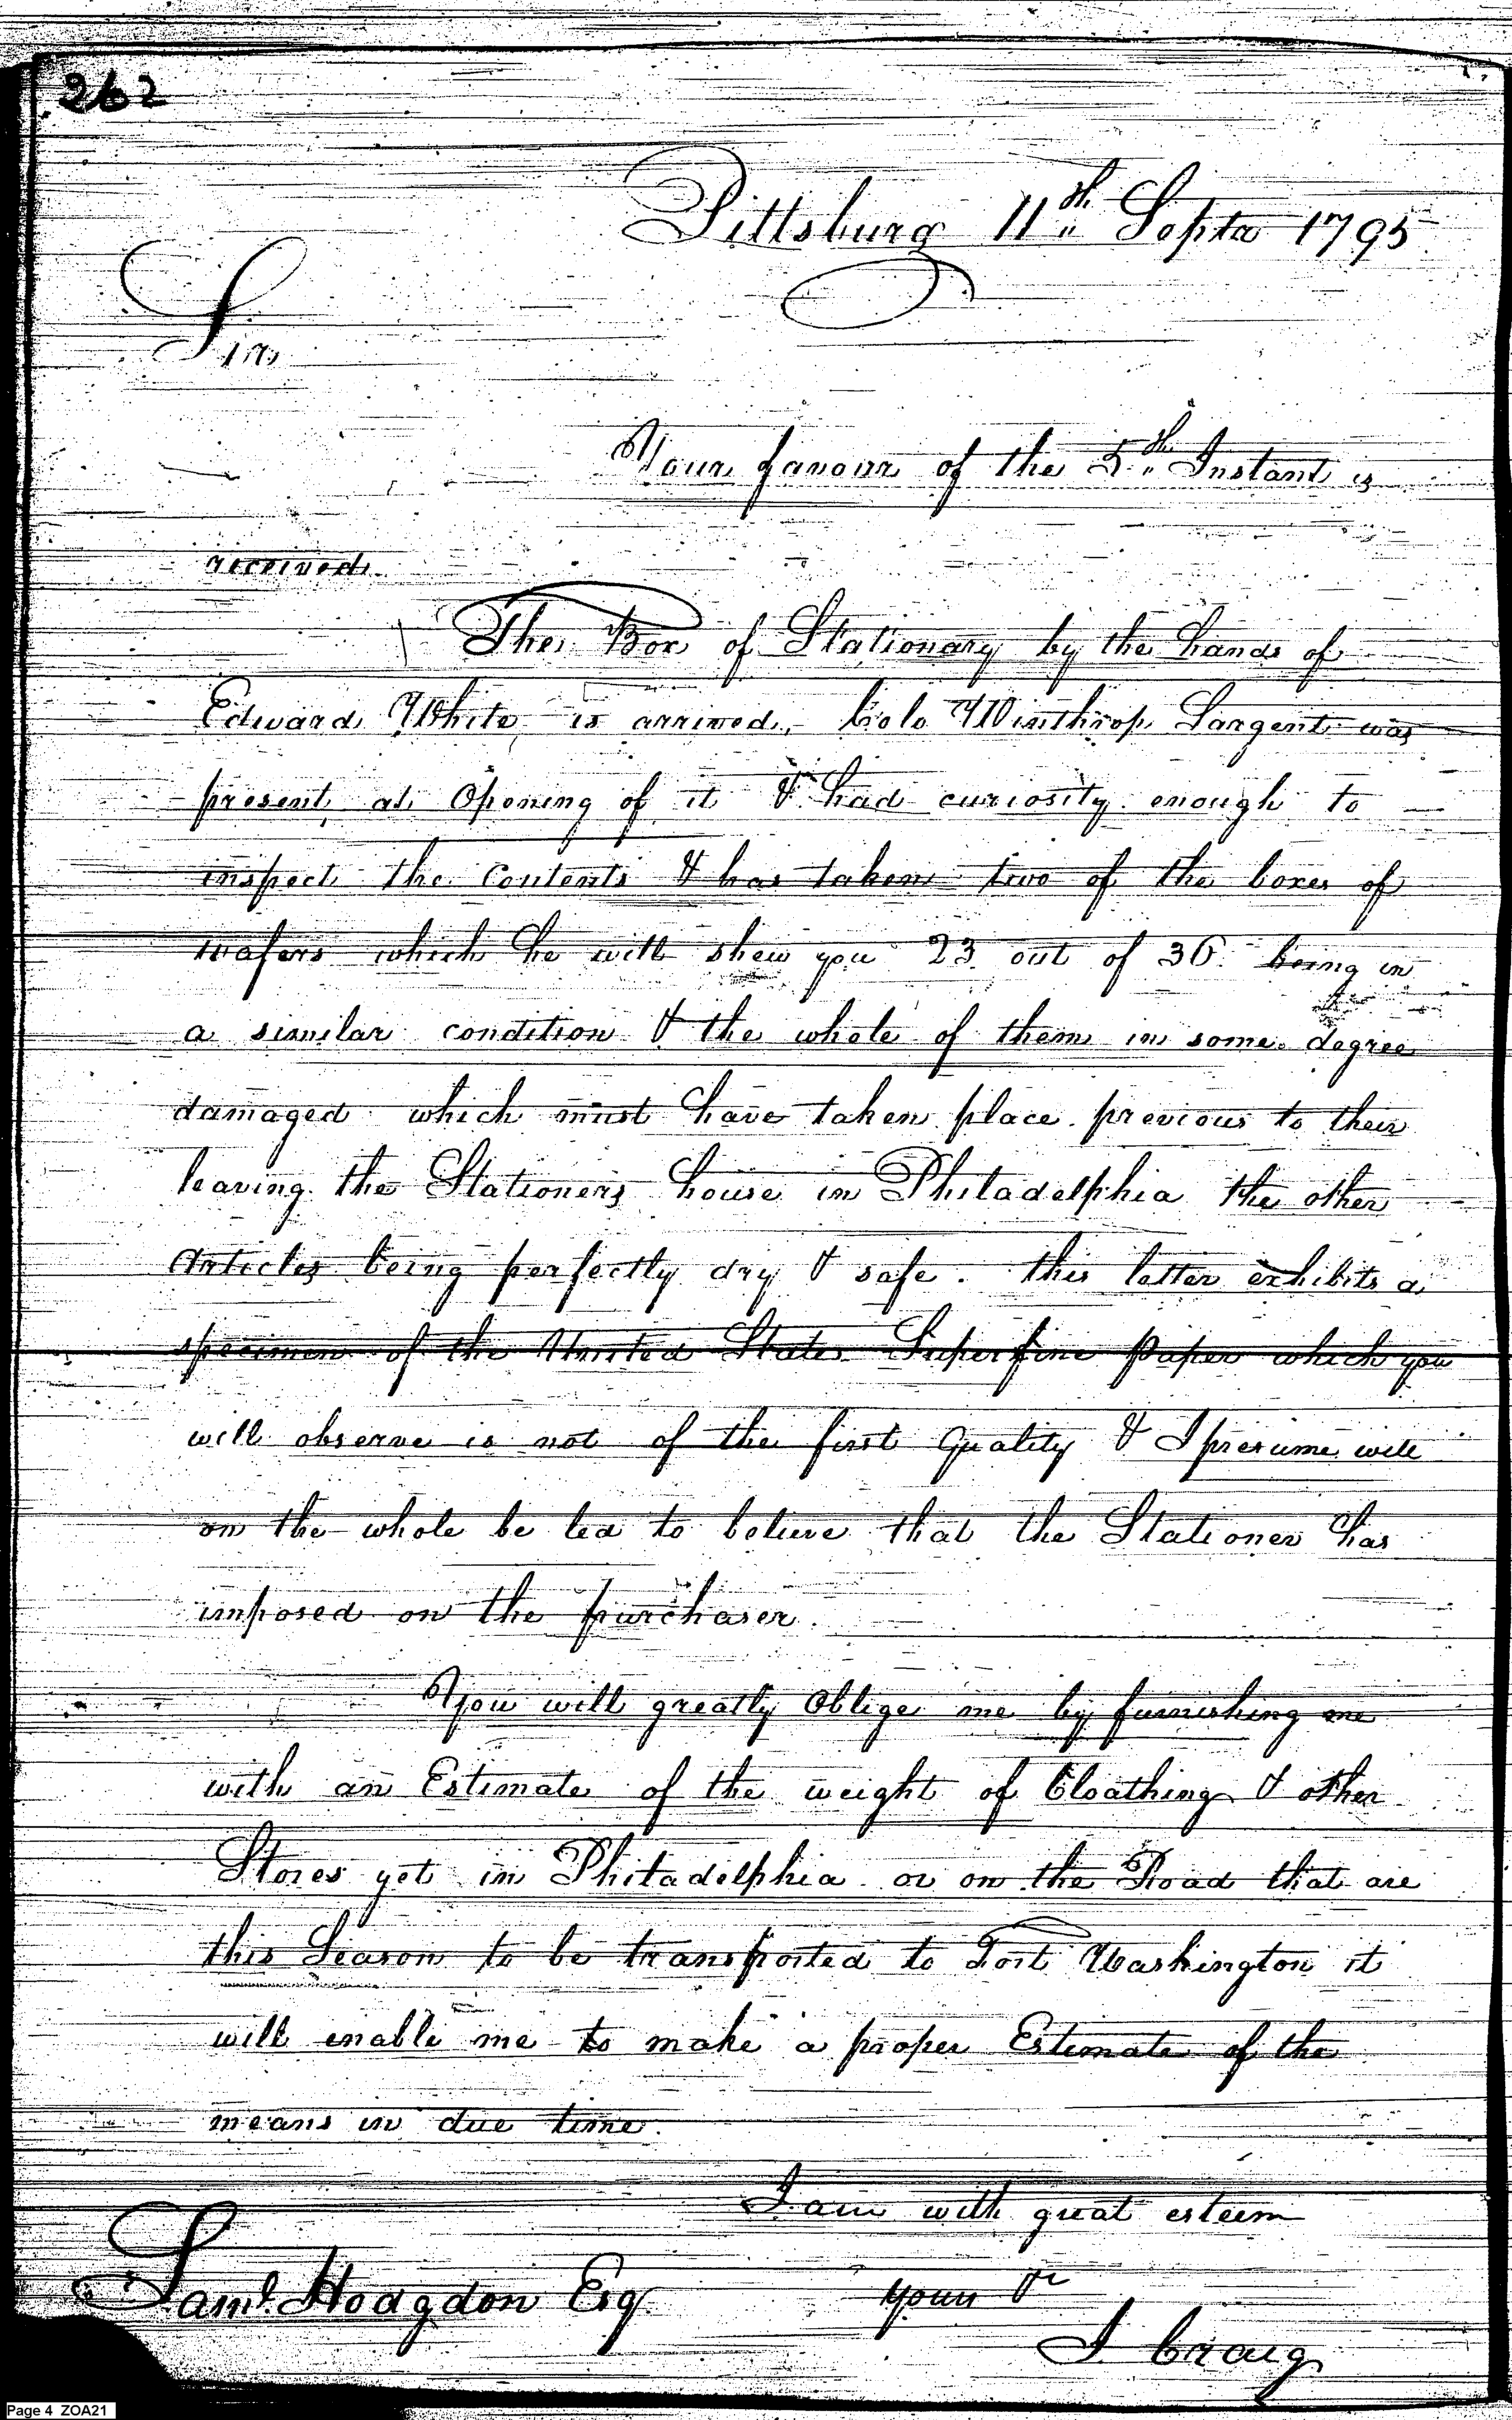 262
Pittsburg 11th Septr 1795
Sir
Your favour of the 5th Instant is
received.
The Box of Stationary by the hands of
Edward White, is arrived, Colo Winthrop Sargent was
present at Opening of it & had curiosity enough to
inspect the Contents & has taken two of the boxes of
wafers which he will shew you 23 out of 36 being in
a similar condition & the whole of them in some degree
damaged which must have taken place previous to their
leaving the Stationers house in Philadelphia the other
Articles being perfectly dry & safe. this letter exhibits a
specimen of the United States Superfine Paper which you
will observe is not of the first Quality & I presume will
on the whole be led to believe that the Stationer has
imposed on the purchaser.
You will greatly Oblige me by furnishing me
with an Estimate of the weight of Cloathing & other
Stores yet in Philadelphia or on the Road that are
this Season to be transported to Fort Washington it
will enable me to make a proper Estimate of the
means in due time.
I am with great esteem
Saml Hodgdon Esq. yours &c
I Craig
Page 4 ZOA21